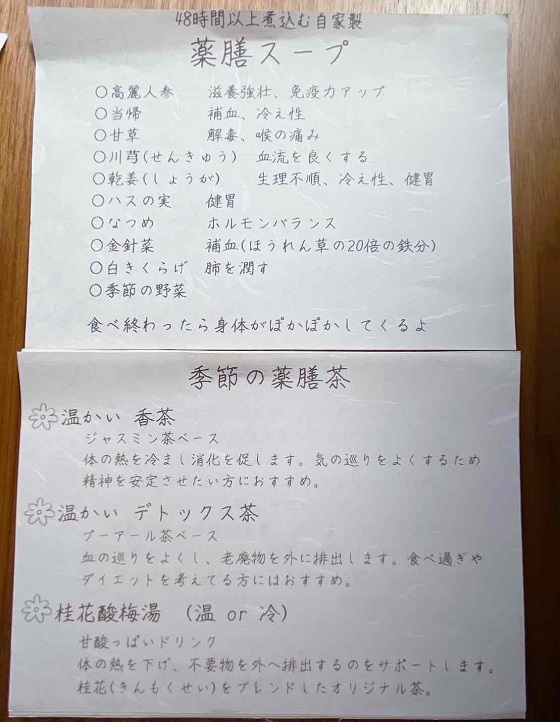 48時間以上煮込む自家製
薬膳スープ
○高麗人参 滋養強壮、免疫力アップ
○当帰 補血、冷え性
○甘草 解毒、喉の痛み
○川芎(せんきゅう) 血流を良くする
○乾姜(しょうが) 生理不順、冷え性、健胃
○ハスの実 健胃
○なつめ ホルモンバランス
○金針菜 補血(ほうれん草の20倍の鉄分)
○白きくらげ 肺を潤す
○季節の野菜
食べ終わったら身体がぽかぽかしてくるよ
季節の薬膳茶
温かい 香茶
ジャスミン茶ベース
体の熱を冷まし消化を促します。気の巡りをよくするため
精神を安定させたい方におすすめ。
温かい デトックス茶
プーアール茶ベース
血の巡りをよくし、老廃物を外に排出します。食べ過ぎや
ダイエットを考えてる方にはおすすめ。
桂花酸梅湯 (温 or 冷)
甘酸っぱいドリンク
体の熱を下げ、不要物を外へ排出するのをサポートします。
桂花(きんもくせい)をブレンドしたオリジナル茶。